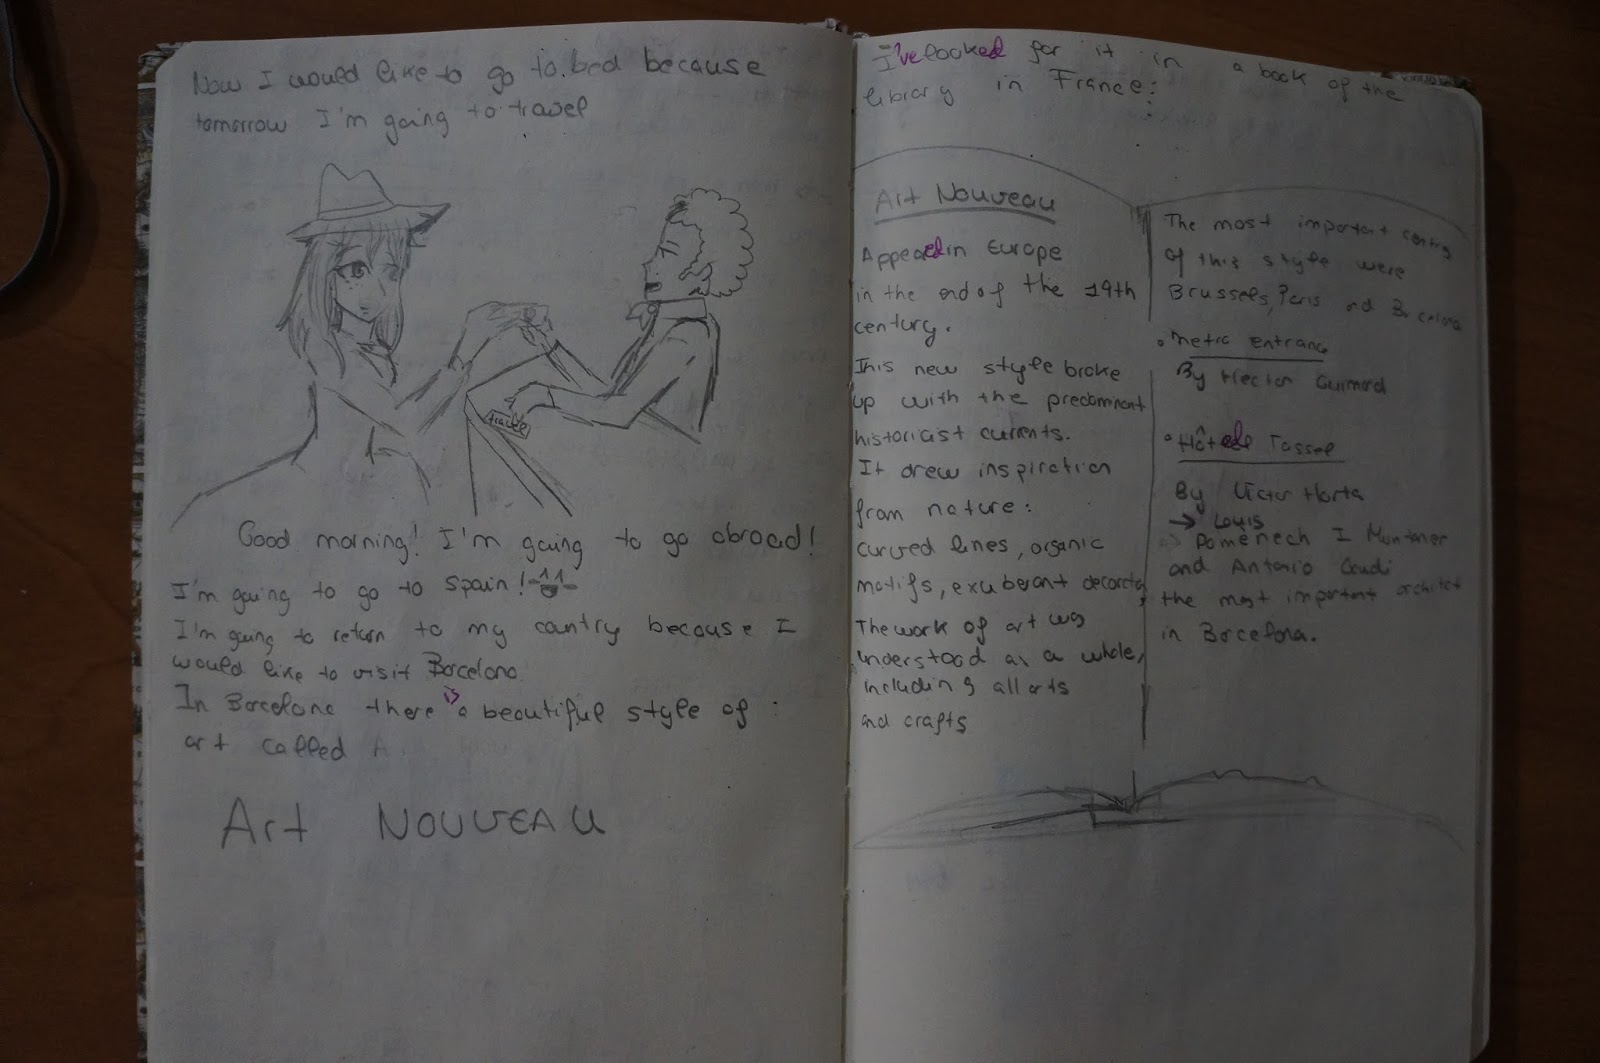 Now I would like to go to bed because
tomorrow I'm going to travel
travel
Good morning! I'm going to go abroad!
I'm going to go to Spain!
I'm going to return to my country because I
would like to visit Barcelona
In Barcelona there is a beautiful style of :
art called A
Art NOUVEAU
I've looked for it in a book of the
library in France:
Art Nouveau
Appeared in Europe
in the end of the 19th
century.
This new style broke
up with the predominant
historicist currents.
It drew inspiration
from nature:
curved lines, organic
motifs, exuberant
The work of art was
understood as a whole,
including all arts
and crafts
The most important
of this style were
Brussels, Paris and Barcelona
• Metro entrance
By Hector Guimard
• Hôtel de Tassel
By Victor Horta
→ Louis
Domenech I Muntaner
and Antonio Gaudi
the most important architect
in Barcelona.